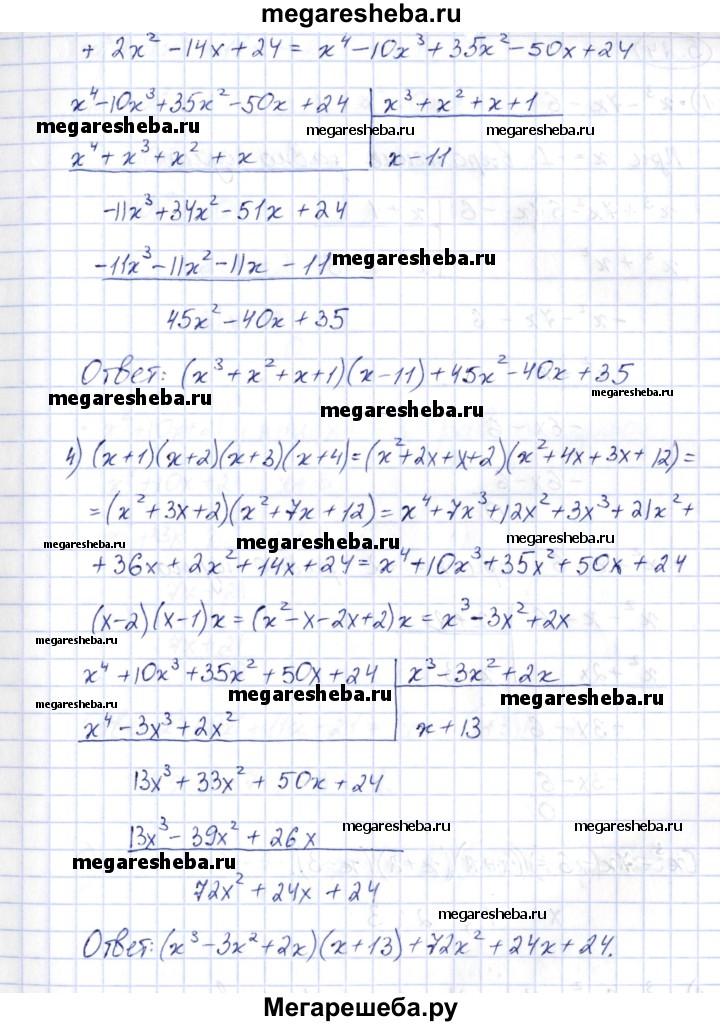 megaresheba.ru
+ 2x² - 14x + 24 = x⁴ - 10x³ + 35x² - 50x + 24
x⁴ - 10x³ + 35x² - 50x + 24 | x³ + x² + x + 1
megaresheba.ru megaresheba.ru megaresheba.ru
x⁴ + x³ + x² + x | x - 11
-11x³ + 34x² - 51x + 24
-11x³ - 11x² - 11x - 11 megaresheba.ru
45x² - 40x + 35
Ответ: (x³ + x² + x + 1)(x - 11) + 45x² - 40x + 35
megaresheba.ru megaresheba.ru megaresheba.ru
4) (x+1)(x+2)(x+3)(x+4) = (x² + 2x + x + 2)(x² + 4x + 3x + 12) =
= (x² + 3x + 2)(x² + 7x + 12) = x⁴ + 7x³ + 12x² + 3x³ + 21x² +
megaresheba.ru megaresheba.ru megaresheba.ru
+ 36x + 2x² + 14x + 24 = x⁴ + 10x³ + 35x² + 50x + 24
(x-2)(x-1)x = (x² - x - 2x + 2)x = x³ - 3x² + 2x
megaresheba.ru
x⁴ + 10x³ + 35x² + 50x + 24 | x³ - 3x² + 2x
megaresheba.ru megaresheba.ru megaresheba.ru
x⁴ - 3x³ + 2x² | x + 13
13x³ + 33x² + 50x + 24
13x³ - 39x² + 26x megaresheba.ru megaresheba.ru
megaresheba.ru
72x² + 24x + 24
Ответ: (x³ - 3x² + 2x)(x + 13) + 72x² + 24x + 24.
Мегарешеба.ру